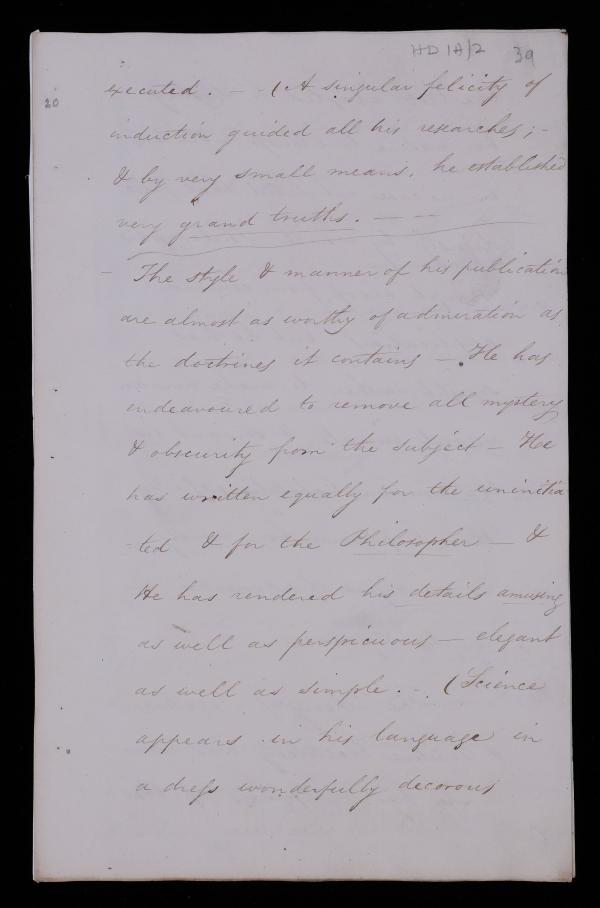 HD 1A/2 39
20
executed. — - (A singular felicity of
induction guided all his researches; -
& by very small means, he established
very grand truths. — —
— The style & manner of his publication
are almost as worthy of admiration as
the doctrines it contains — He has
endeavoured to remove all mystery
& obscurity from the subject — He
has written equally for the uninitia
-ted & for the Philosopher — &
He has rendered his details amusing
as well as perspicuous — elegant
as well as simple. - (Science
appears in his language in
a dress wonderfully decorous